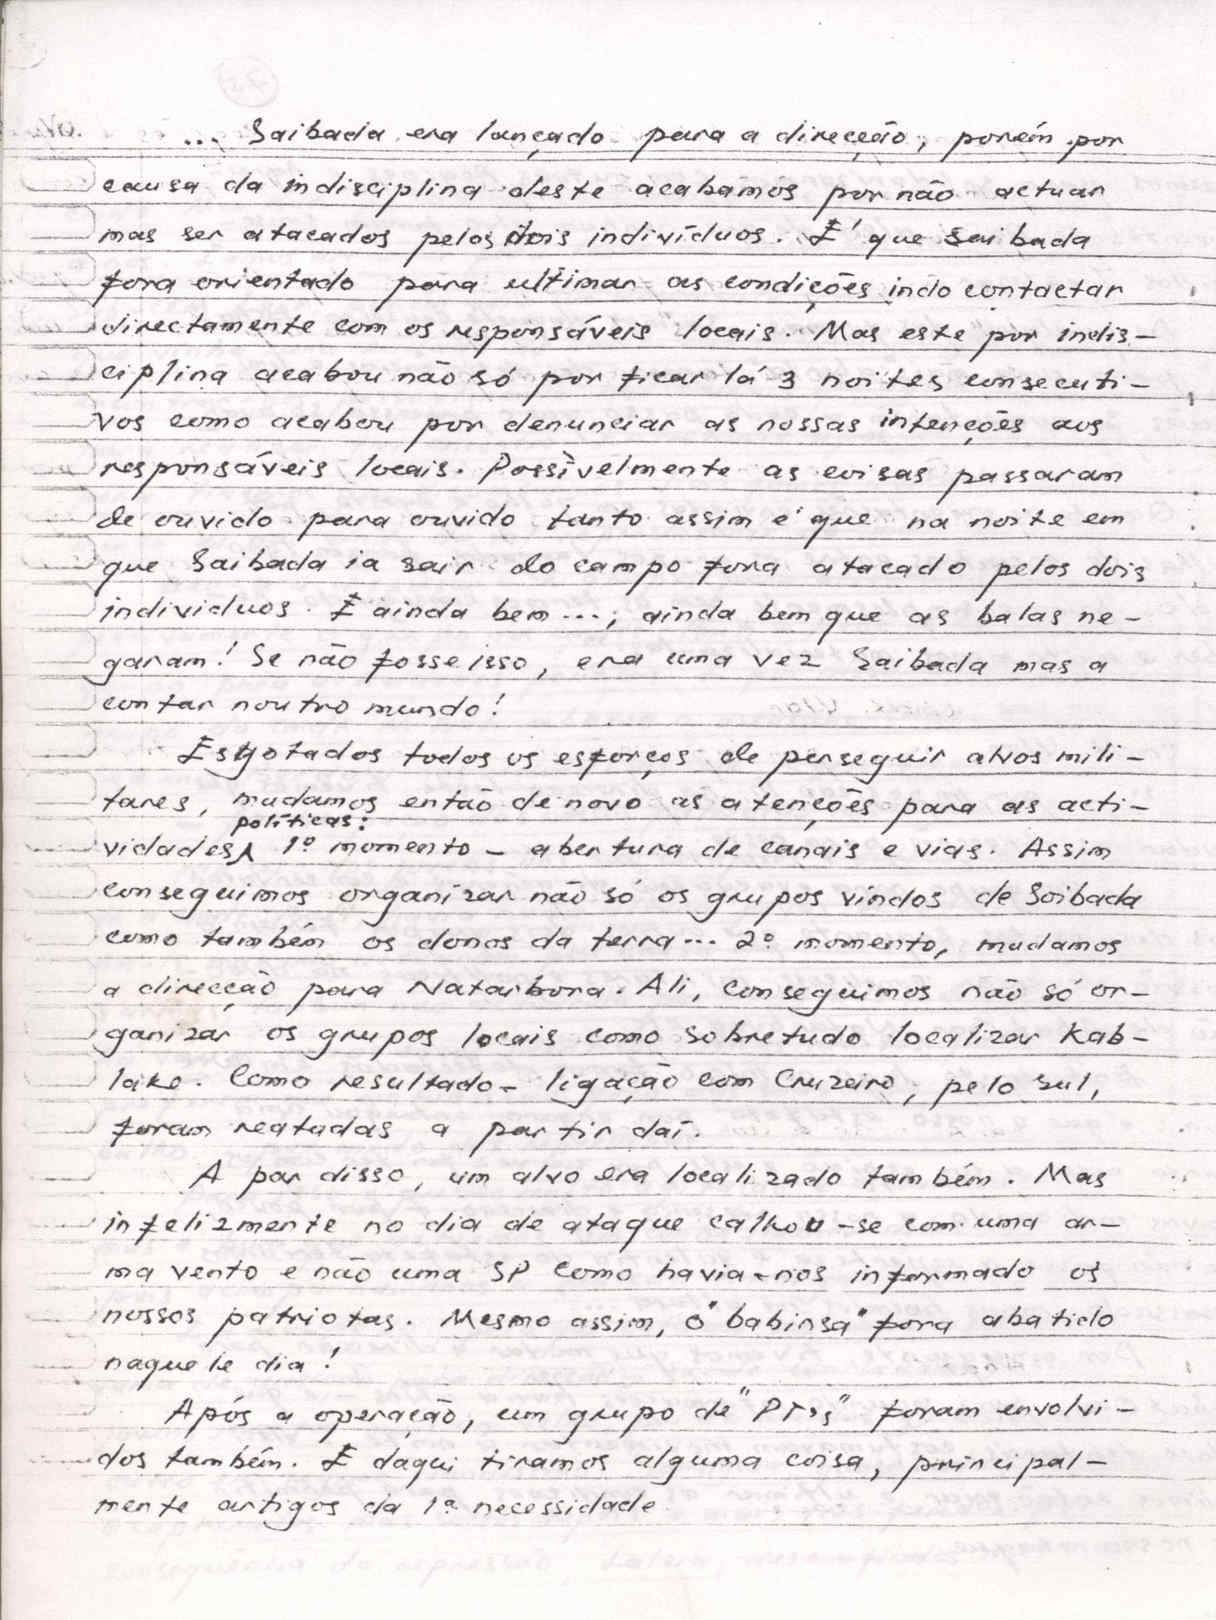 ... Saibada era lançado para a direcção, porém por
causa da indisciplina deste acabamos por não actuar
mas ser atacados pelos dois indivíduos. É que Saibada
fora orientado para ultimar as condições indo contactar
directamente com os responsáveis locais. Mas este por indis-
ciplina acabou não só por ficar lá 3 noites consecuti-
vos como acabou por denunciar as nossas intenções aos
responsáveis locais. Possìvelmente as coisas passaram
de ouvido para ouvido tanto assim é que na noite em
que Saibada ia sair do campo fora atacado pelos dois
individuos. E ainda bem...; ainda bem que as balas ne-
garam! Se não fosse isso, era uma vez Saibada mas a
contar noutro mundo!
Esgotados todos os esforços de perseguir alvos mili-
tares, mudamos então de novo as atenções para as acti-
vidades políticas: 1º momento - abertura de canais e vias. Assim
conseguimos organizar não só os grupos vindos de Soibada
como também os donos da terra... 2º momento, mudamos
a direcção para Natarbora. Ali, conseguimos não só or-
ganizar os grupos locais como sobretudo localizar Kab-
lake. Como resultado - ligação com Cruzeiro, pelo sul,
foram reatadas a partir daí.
A par disso, um alvo era localizado também. Mas
infelizmente no dia de ataque calhou-se com uma ar-
ma vento e não uma SP como havia-nos informado os
nossos patriotas. Mesmo assim, o "babinsa" fora abatido
naquele dia!
Após a operação, um grupo de "PTs" foram envolvi-
dos também. E daqui tiramos alguma coisa, principal-
mente artigos da 1ª necessidade